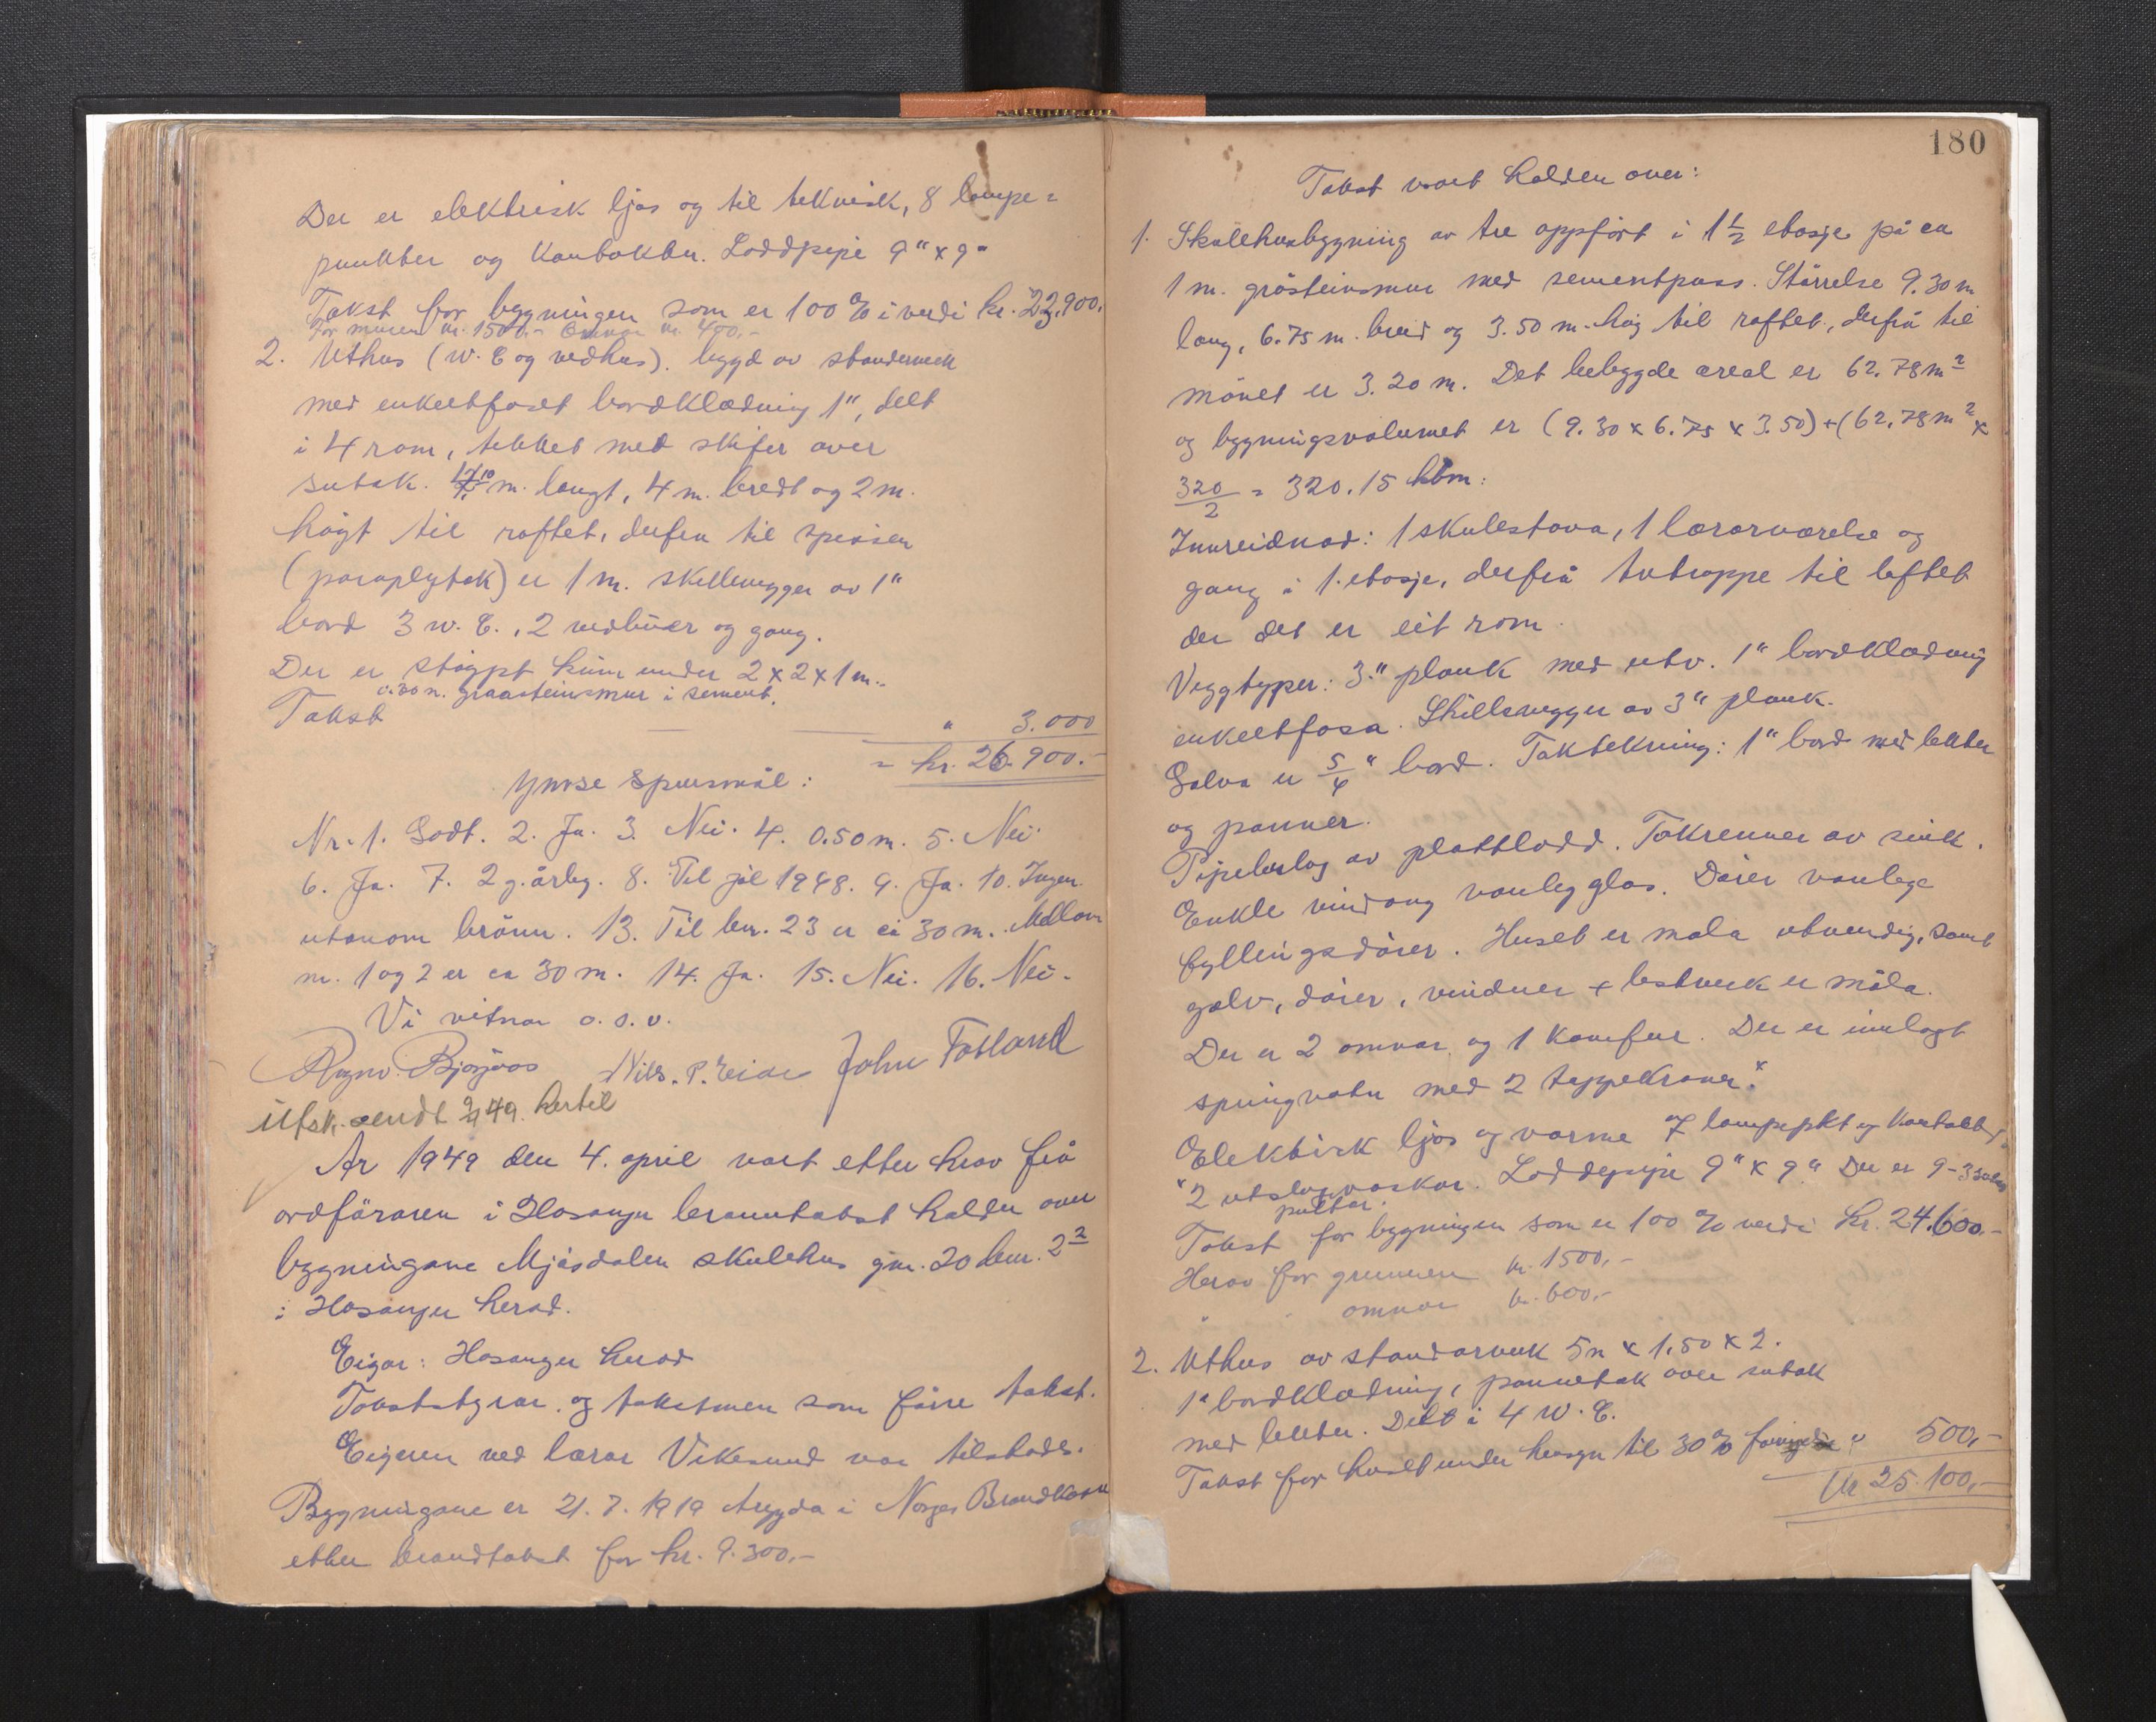 Der er elektrisk ljos og til teknisk, 8 lampe=
punkter og kontakter. Loddpipe 9" x 9"
Takst for bygningen som er 100 % i verdi kr. 23.900.
For muren kr. 1500.- Omnar kr. 400,-
2. Uthus (W.C og vedhus). bygd av standerverk
med enkeltfaset bordklædning 1", delt
i 4 rom, tekket med skifer over
sutak. m. langt, 4 m. bredt og 2 m.
högt til raftet, derfra til spissen
(paraplytak) er 1 m. skillevegger av 1"
bord 3 W.C., 2 vedbuer og gang.
Der er stöypt kum under 2 x 2 x 1 m.
0.30 m. graasteinsmur i sement.
Takst " 3.000
= kr. 26.900.-
Ymse spursmål:
Nr. 1. Godt. 2. Ja. 3. Nei. 4. 0.50 m. 5. Nei.
6. Ja. 7. 2 g. årleg. 8. Til jol 1948. 9. Ja. 10. Ingen
utanom brönn. 13. Til bnr. 23 er ca 30 m. Mellom
nr. 1 og 2 er ca 30 m. 14. Ja. 15. Nei. 16. Nei.
Vi vitnar o.s.v.
Ragnv. Bjørgaas Nils. P. Eide John Fosland
Utsk. sendt 9/4 49. hertil
År 1949 den 4. april vart etter krav frå
ordföraren i Hosanger branntakst halden over
bygningane Mjösdalen skulehus gnr. 20 bnr. 2²
i Hosanger herad.
Eigar: Hosanger herad
Takststyrar og takstmen som förre takst.
Eigeren ved lærar Vikesund var tilstades.
Bygningane er 21. 7. 1919 trygda i Norges Brandkasse
etter brandtakst for kr. 9.300.-
180
Takst vart halden over:
1. Skulehusbygning av tre oppfört i 1 1/2 etasje på ca
1 m. gråsteinsmur med sementpuss. Störrelse 9.30 m
lang, 6.75 m. breid og 3.50 m. høg til raftet, derfrå til
mönet er 3.20 m. Det bebygde areal er 62.78 m²
og bygningsvolumet er (9.30 x 6.75 x 3.50) + (62.78 m² x
320/2 = 320.15 kbm:
Innreidnad: 1 skulestova, 1 lærarværelse og
gang i 1. etasje, derfrå tretrappe til loftet
der det er eit rom.
Veggtyper: 3" plank med utv. 1" bordklædning
enkeltfasa. Skillevegger av 3" plank.
Golva er 5/4" bord. Taktekning: 1" bord med lekter
og panner.
Pipebeslag av plattlodd. Takrenner av sink.
Enkle vindaug vanleg glas. Dörer vanlege
fyllingsdörer. Huset er mala utvendig, samt
golv, dörer, vinduer + listverk er måla.
Der er 2 omnar og 1 komfur. Der er innlagt
springvatn med 2 tappekraner."
Elektrisk ljos og varme 7 lampepkt og kontakter
" 2 utslagsvaskar. Loddepipe 9" x 9". Der er 9 - 3 seters
pultar.
Takst for bygningen som er 100 % verdi kr. 24.600.-
Herav for grunnen kr. 1500,-
" " omnar kr. 600,-
2. Uthus av standarverk 5 m x 1.50 x 2.
1" bordklædning, pannetak over sutak
med lekter. Delt i 4 W.C.
Takst for huset under hensyn til 30 % " 500,-
Kr 25.100,-